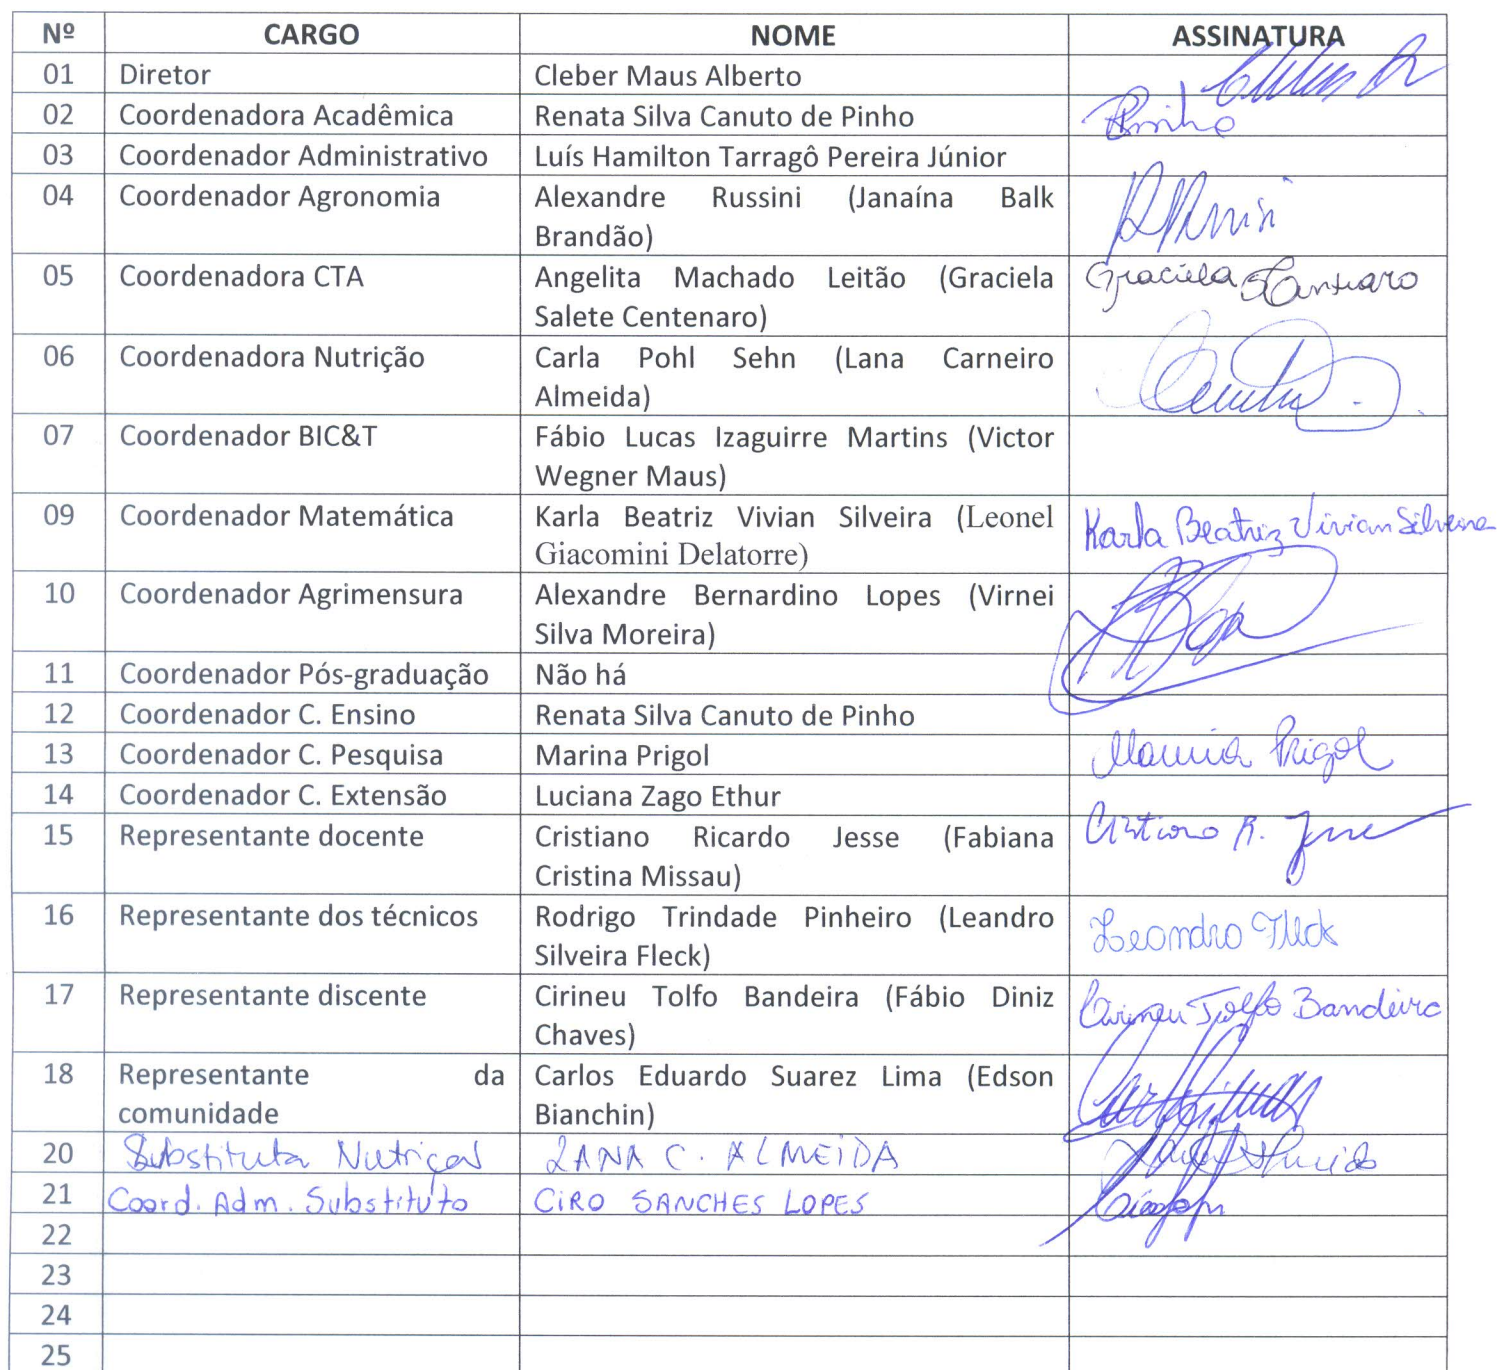 Nº CARGO NOME ASSINATURA
01 Diretor Cleber Maus Alberto
02 Coordenadora Acadêmica Renata Silva Canuto de Pinho Pinho
03 Coordenador Administrativo Luís Hamilton Tarragô Pereira Júnior
04 Coordenador Agronomia Alexandre Russini (Janaína Balk
Brandão)
05 Coordenadora CTA Angelita Machado Leitão (Graciela Graciela S Centenaro
Salete Centenaro)
06 Coordenadora Nutrição Carla Pohl Sehn (Lana Carneiro
Almeida)
07 Coordenador BIC&T Fábio Lucas Izaguirre Martins (Victor
Wegner Maus)
09 Coordenador Matemática Karla Beatriz Vivian Silveira (Leonel Karla Beatriz Vivian Silveira
Giacomini Delatorre)
10 Coordenador Agrimensura Alexandre Bernardino Lopes (Virnei
Silva Moreira)
11 Coordenador Pós-graduação Não há
12 Coordenador C. Ensino Renata Silva Canuto de Pinho
13 Coordenador C. Pesquisa Marina Prigol Marina Prigol
14 Coordenador C. Extensão Luciana Zago Ethur
15 Representante docente Cristiano Ricardo Jesse (Fabiana Cristiano R. Jesse
Cristina Missau)
16 Representante dos técnicos Rodrigo Trindade Pinheiro (Leandro Leandro Fleck
Silveira Fleck)
17 Representante discente Cirineu Tolfo Bandeira (Fábio Diniz Cirineu Tolfo Bandeira
Chaves)
18 Representante da Carlos Eduardo Suarez Lima (Edson
comunidade Bianchin)
20 Substituta Nutrição LANA C. ALMEIDA
21 Coord. Adm. Substituto CIRO SANCHES LOPES
22
23
24
25